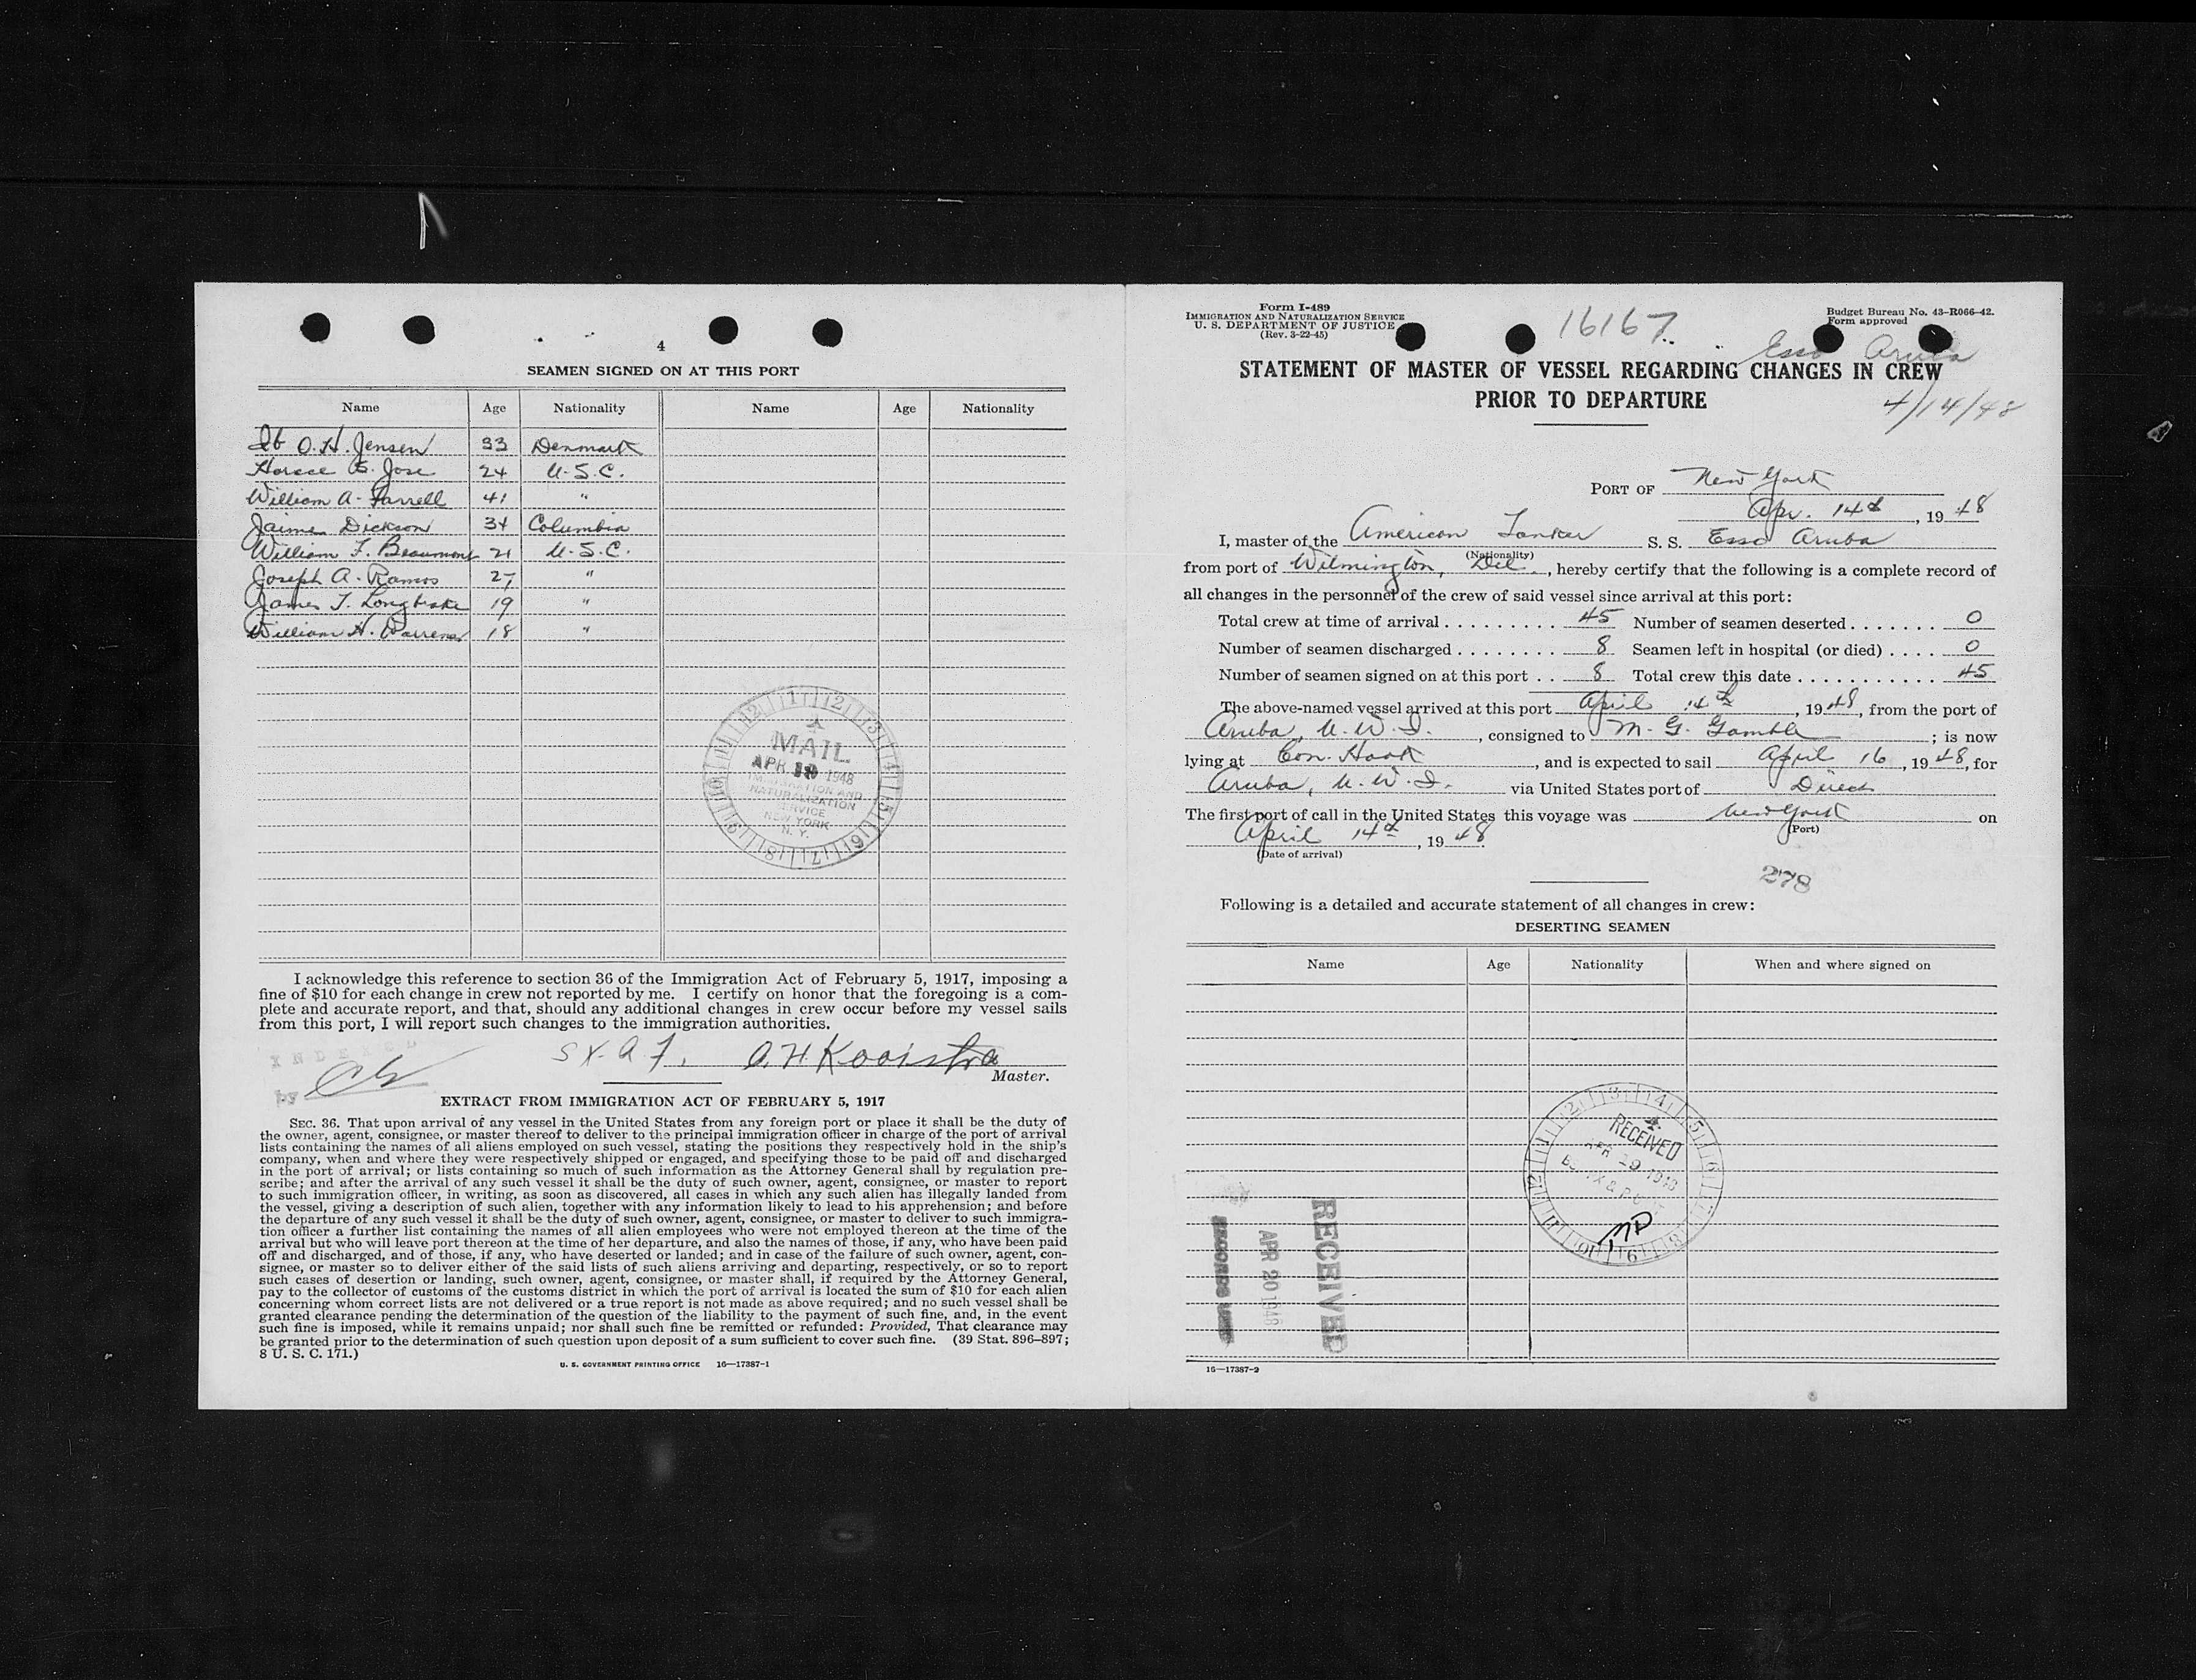 4
SEAMEN SIGNED ON AT THIS PORT
Name Age Nationality Name Age Nationality
Ib O. H. Jensen 33 Denmark
Horace B. Jose 24 U.S.C.
William A. Farrell 41 "
Jaime Dickson 34 Columbia
William F. Beaumont 21 U.S.C.
Joseph A. Ramos 27 "
James T. 19 "
William H. 18 "
MAIL
APR 19 1948
IMMIGRATION AND
NATURALIZATION
SERVICE
NEW YORK
N. Y.
I acknowledge this reference to section 36 of the Immigration Act of February 5, 1917, imposing a
fine of $10 for each change in crew not reported by me. I certify on honor that the foregoing is a com-
plete and accurate report, and that, should any additional changes in crew occur before my vessel sails
from this port, I will report such changes to the immigration authorities.
INDEXED
by
A. H. Kooistra
Master.
EXTRACT FROM IMMIGRATION ACT OF FEBRUARY 5, 1917
SEC. 36. That upon arrival of any vessel in the United States from any foreign port or place it shall be the duty of
the owner, agent, consignee, or master thereof to deliver to the principal immigration officer in charge of the port of arrival
lists containing the names of all aliens employed on such vessel, stating the positions they respectively hold in the ship's
company, when and where they were respectively shipped or engaged, and specifying those to be paid off and discharged
in the port of arrival; or lists containing so much of such information as the Attorney General shall by regulation pre-
scribe; and after the arrival of any such vessel it shall be the duty of such owner, agent, consignee, or master to report
to such immigration officer, in writing, as soon as discovered, all cases in which any such alien has illegally landed from
the vessel, giving a description of such alien, together with any information likely to lead to his apprehension; and before
the departure of any such vessel it shall be the duty of such owner, agent, consignee, or master to deliver to such immigra-
tion officer a further list containing the names of all alien employees who were not employed thereon at the time of the
arrival but who will leave port thereon at the time of her departure, and also the names of those, if any, who have been paid
off and discharged, and of those, if any, who have deserted or landed; and in case of the failure of such owner, agent, con-
signee, or master so to deliver either of the said lists of such aliens arriving and departing, respectively, or so to report
such cases of desertion or landing, such owner, agent, consignee, or master shall, if required by the Attorney General,
pay to the collector of customs of the customs district in which the port of arrival is located the sum of $10 for each alien
concerning whom correct lists are not delivered or a true report is not made as above required; and no such vessel shall be
granted clearance pending the determination of the question of the liability to the payment of such fine, and, in the event
such fine is imposed, while it remains unpaid; nor shall such fine be remitted or refunded: Provided, That clearance may
be granted prior to the determination of such question upon deposit of a sum sufficient to cover such fine. (39 Stat. 896–897;
8 U. S. C. 171.)
U. S. GOVERNMENT PRINTING OFFICE 16—17387-1
Form I-489
IMMIGRATION AND NATURALIZATION SERVICE
U. S. DEPARTMENT OF JUSTICE
(Rev. 3-22-45)
16167
Budget Bureau No. 43-R066-42.
Form approved
Esso Aruba
STATEMENT OF MASTER OF VESSEL REGARDING CHANGES IN CREW
PRIOR TO DEPARTURE
4/14/48
PORT OF New York
Apr. 14th, 1948
I, master of the American Tanker S. S. Esso Aruba
(Nationality)
from port of Wilmington, Del., hereby certify that the following is a complete record of
all changes in the personnel of the crew of said vessel since arrival at this port:
Total crew at time of arrival . . . . . . . . . 45 Number of seamen deserted . . . . . . . 0
Number of seamen discharged . . . . . . . . 8 Seamen left in hospital (or died) . . . . 0
Number of seamen signed on at this port . . 8 Total crew this date . . . . . . . . . . . 45
The above-named vessel arrived at this port April 14th, 1948, from the port of
Aruba, N.W.I., consigned to M. G. Gamble; is now
lying at Con. Hook, and is expected to sail April 16, 1948, for
Aruba, N.W.I. via United States port of Direct
The first port of call in the United States this voyage was New York on
(Port)
April 14th, 1948.
(Date of arrival)
278
Following is a detailed and accurate statement of all changes in crew:
DESERTING SEAMEN
Name Age Nationality When and where signed on
RECEIVED
APR 19 1948
RECEIVED
APR 20 1948
RECORDS UNIT
16—17387-2